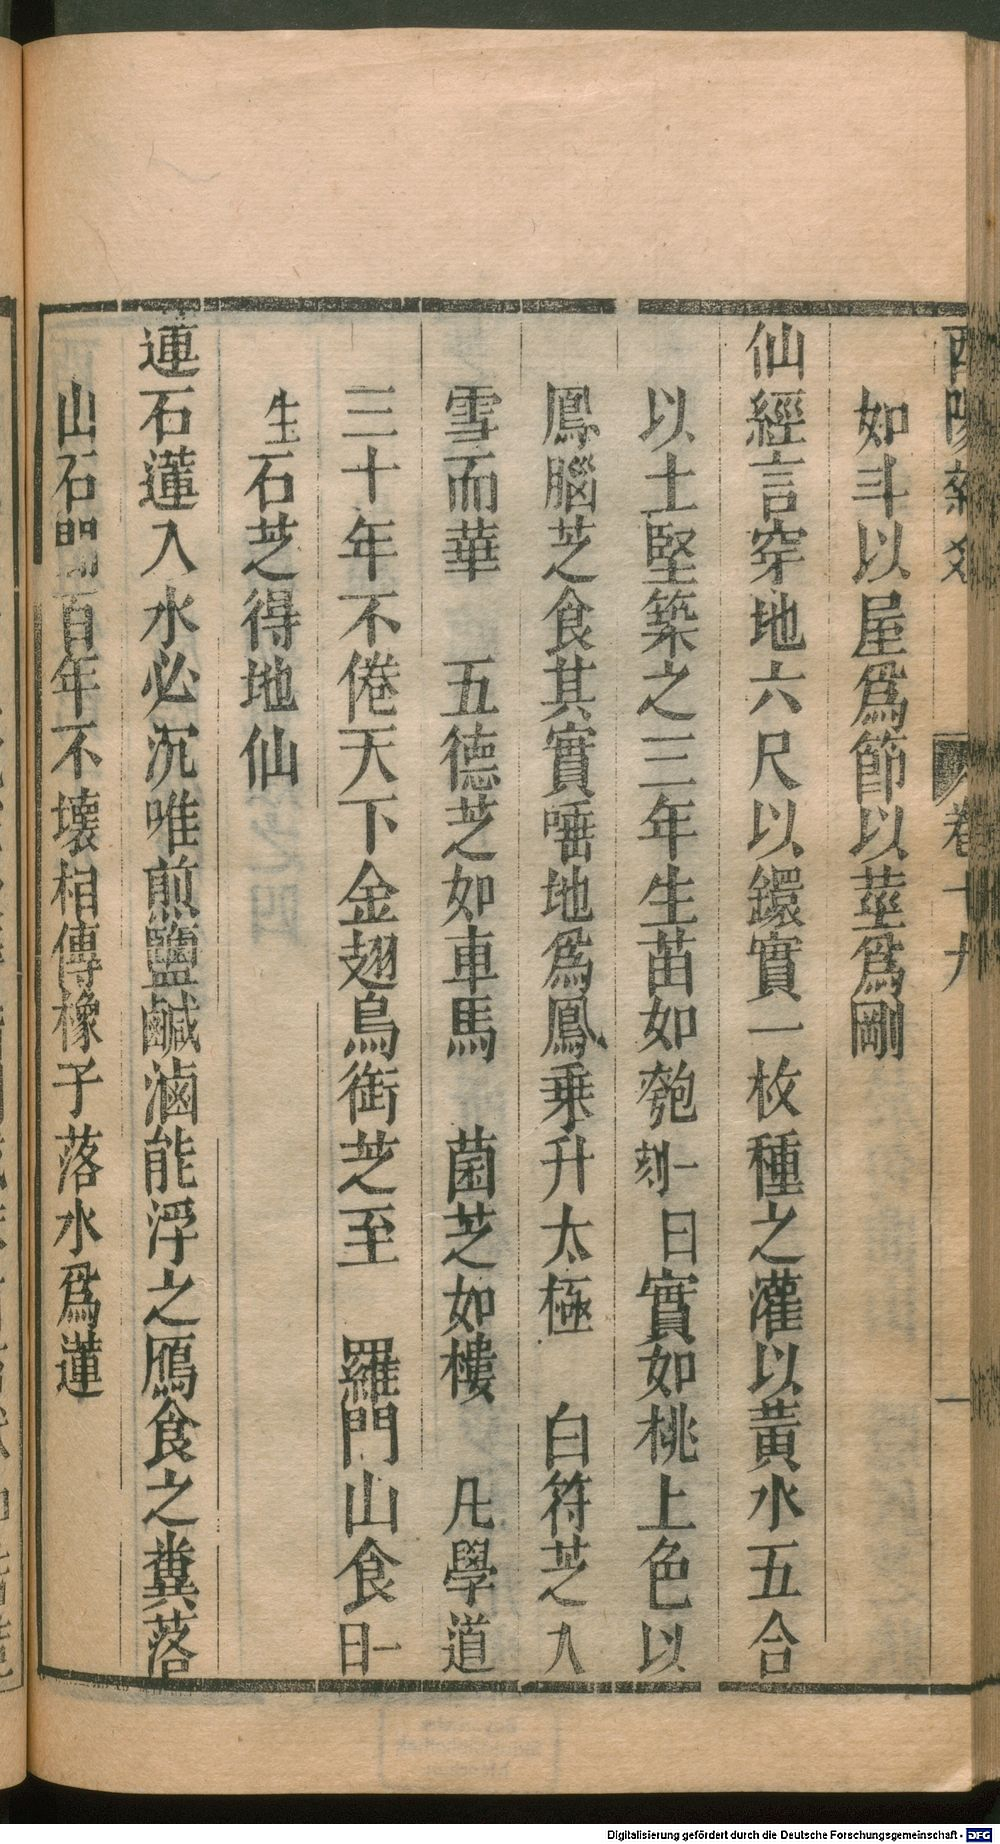 酉陽雜爼 卷十九
如斗以屋爲節以莖爲剛
仙經言穿地六尺以鐶實一枚種之灌以黃水五合
以土堅築之三年生苗如匏一刻曰實如桃上色以
鳳腦芝食其實唾地爲鳳乗升太極 白符芝人
雪而華 五德芝如車馬 菌芝如樓 凡學道
三十年不倦天下金翅鳥銜芝至 羅門山食一曰
生石芝得地仙
蓮石蓮入水必沉唯煎鹽鹹滷能浮之鴈食之糞落
山石間百年不壞相傳橡子落水爲蓮
Digitalisierung gefördert durch die Deutsche Forschungsgemeinschaft - DFG